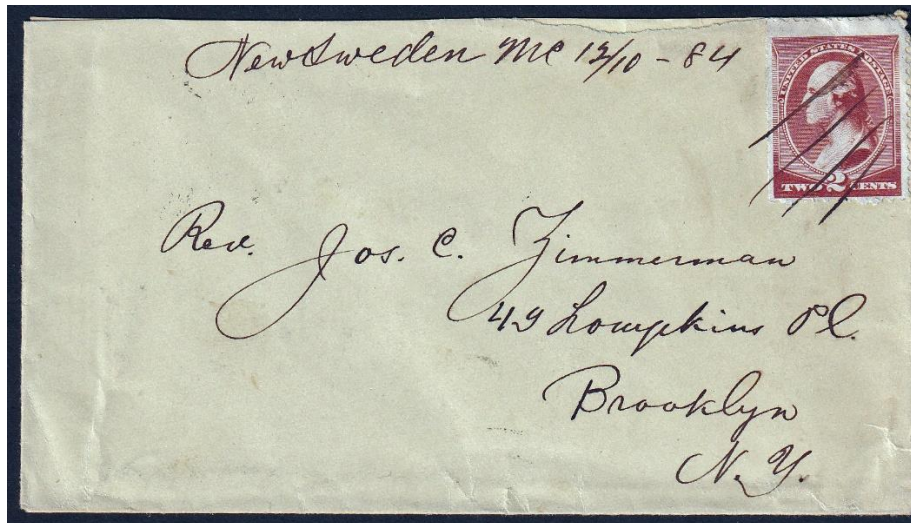 New Sweden Me 12/10 - 84
UNITED STATES POSTAGE
TWO 2 CENTS
Rev. Jos. C. Zimmerman
49 Tompkins Pl.
Brooklyn
N. Y.